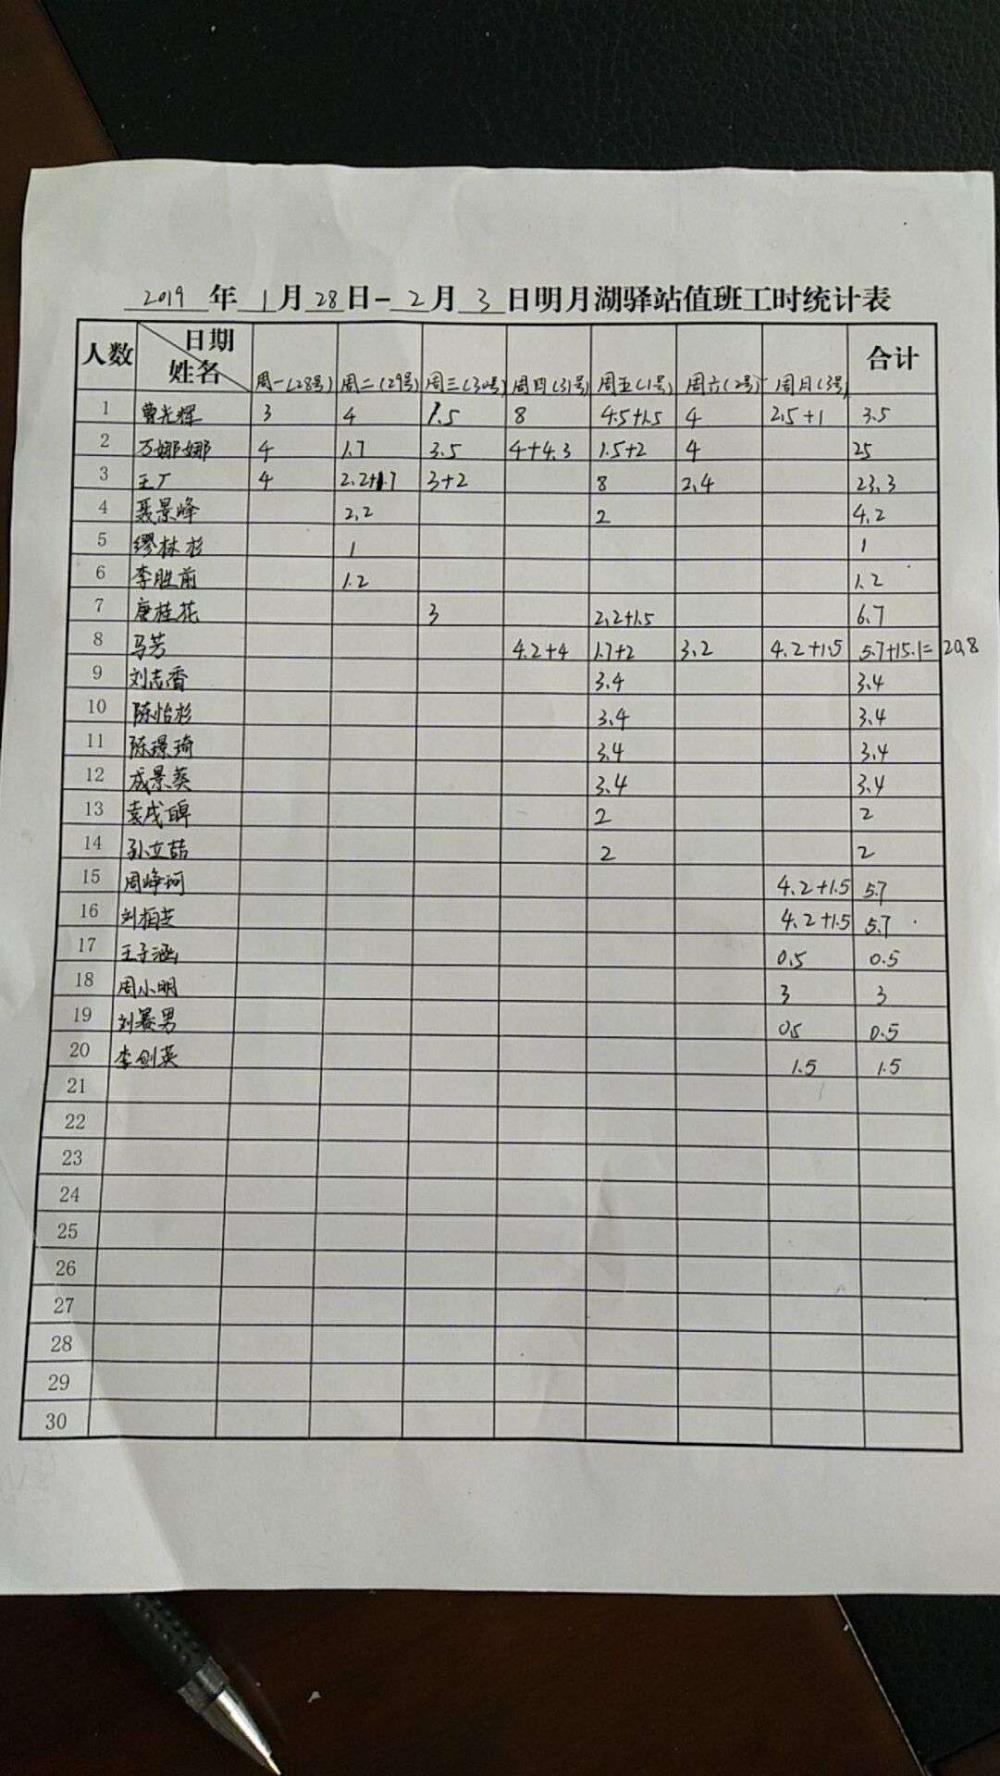 2019年1月28日-2月3日明月湖驿站值班工时统计表
人数 日期 姓名 周一(28号) 周二(29号) 周三(30号) 周四(31号) 周五(1号) 周六(2号) 周日(3号) 合计
1 曹光辉 3 4 1.5 8 4.5+1.5 4 2.5+1 3.5
2 万娜娜 4 1.7 3.5 4+4.3 1.5+2 4 25
3 王厂 4 2.2+1.7 3+2 8 2.4 23.3
4 聂景峰 2.2 2 4.2
5 缪林杉 1 1
6 李胜前 1.2 1.2
7 唐桂花 3 2.2+1.5 6.7
8 马芳 4.2+4 1.7+2 3.2 4.2+1.5 5.7+15.1=20.8
9 刘志香 3.4 3.4
10 陈怡杉 3.4 3.4
11 陈璟琦 3.4 3.4
12 成景葵 3.4 3.4
13 袁成 2 2
14 孙立喆 2 2
15 周峥珂 4.2+1.5 5.7
16 刘栢芝 4.2+1.5 5.7
17 王子涵 0.5 0.5
18 周小明 3 3
19 刘男 05 0.5
20 李剑英 1.5 1.5
21
22
23
24
25
26
27
28
29
30